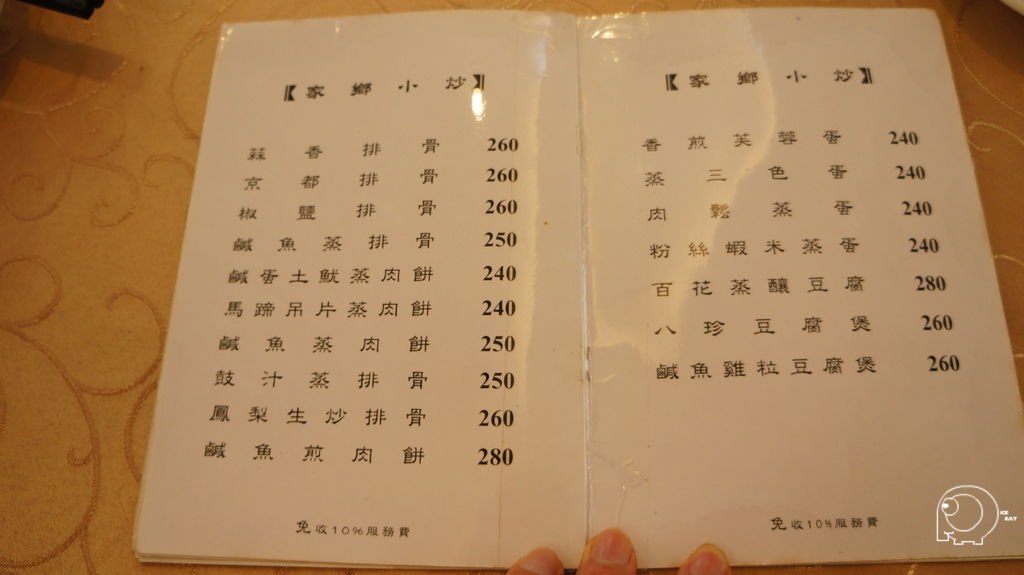 【家鄉小炒】
蒜香排骨 260
京都排骨 260
椒鹽排骨 260
鹹魚蒸排骨 250
鹹蛋土魷蒸肉餅 240
馬蹄吊片蒸肉餅 240
鹹魚蒸肉餅 250
鼓汁蒸排骨 250
鳳梨生炒排骨 260
鹹魚煎肉餅 280
免收10%服務費
【家鄉小炒】
香煎芙蓉蛋 240
蒸三色蛋 240
肉鬆蒸蛋 240
粉絲蝦米蒸蛋 240
百花蒸釀豆腐 280
八珍豆腐煲 260
鹹魚雞粒豆腐煲 260
免收10%服務費